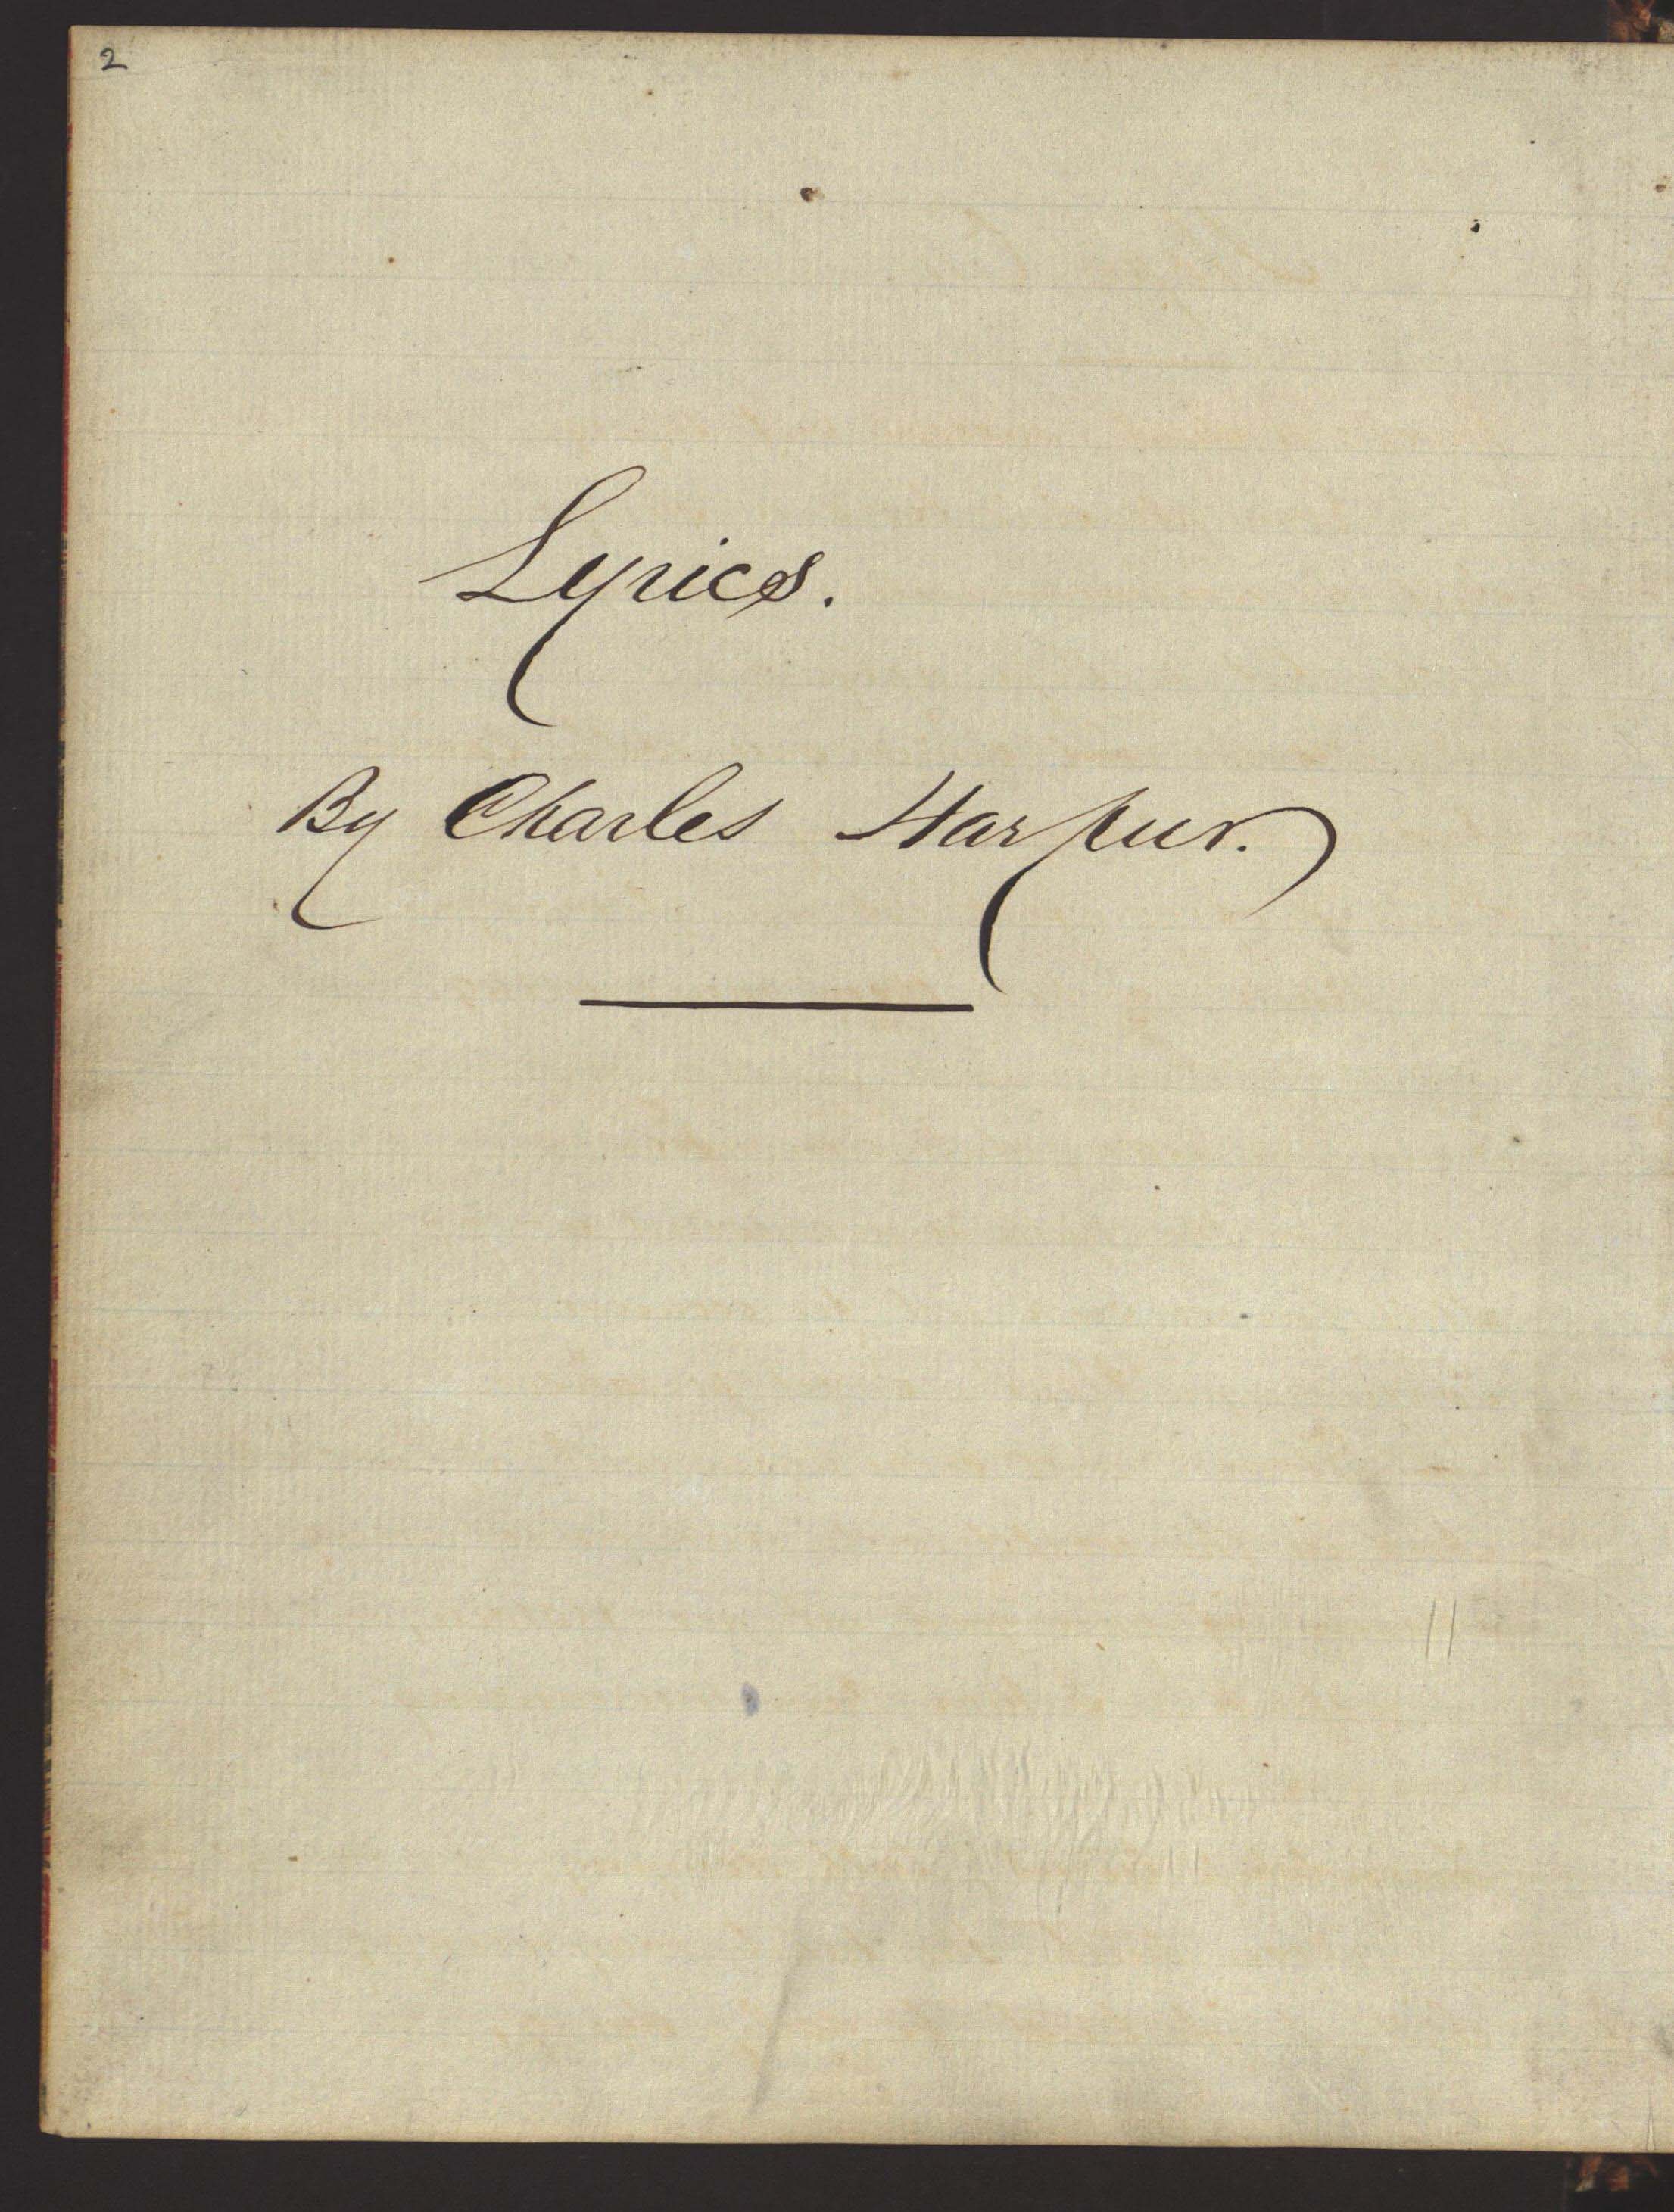 2
Lyrics.
By Charles Harpur.